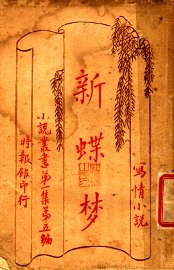 寫情小說
新蝶夢
小說叢書第一集第五編
時報館印行